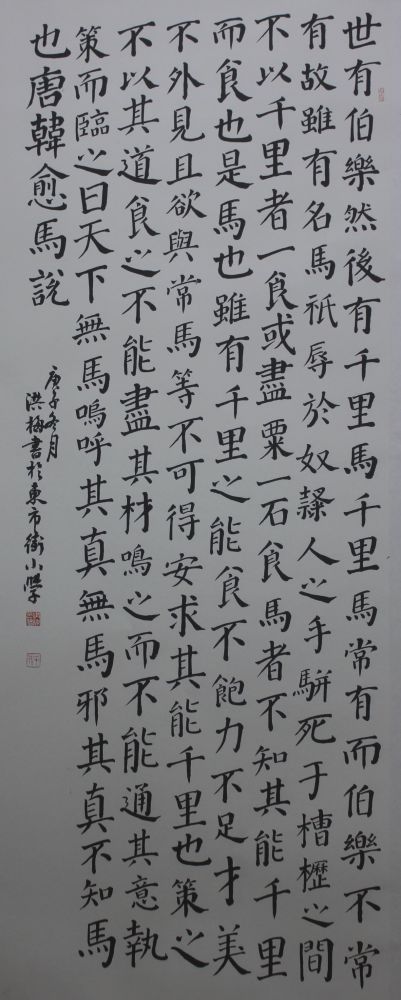 世有伯樂然後有千里馬千里馬常有而伯樂不常
有故雖有名馬祇辱於奴隸人之手駢死于槽櫪之間
不以千里者一食或盡粟一石食馬者不知其能千里
而食也是馬也雖有千里之能食不飽力不足才美
不外見且欲與常馬等不可得安求其能千里也策之
不以其道食之不能盡其材鳴之而不能通其意執
策而臨之曰天下無馬嗚呼其真無馬邪其真不知馬
也唐韓愈馬說
庚子冬月
洪梅書於東市街小學